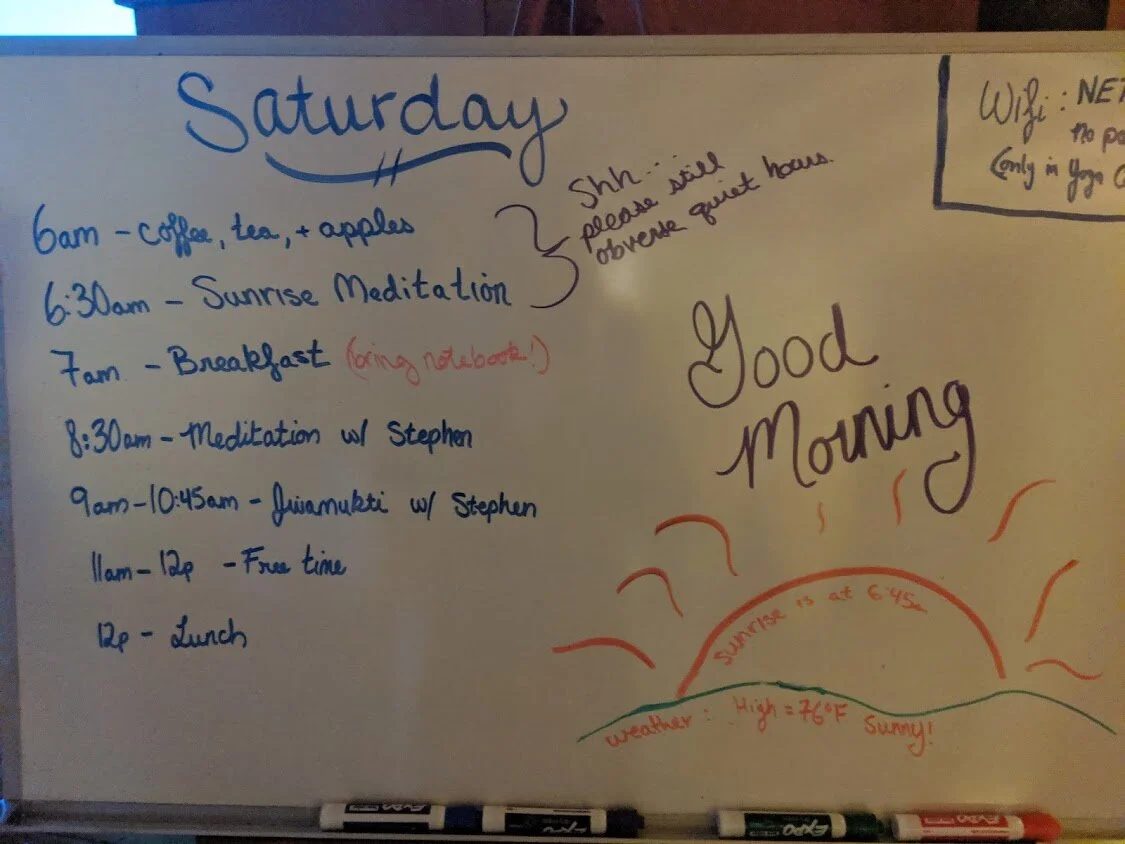 Saturday
Wifi: NET
no pa
(only in Yoga
6am - coffee, tea, + apples
Shh...
please still
obverse quiet hours.
6:30am - Sunrise Meditation
7am - Breakfast (bring notebook!)
8:30am - Meditation w/ Stephen
9am-10:45am - Jivamukti w/ Stephen
11am-12p - Free time
12p - Lunch
Good
Morning
Sunrise is at 6:45a
weather: High = 76°F Sunny!
EXPO
EXPO
EXPO
EXPO